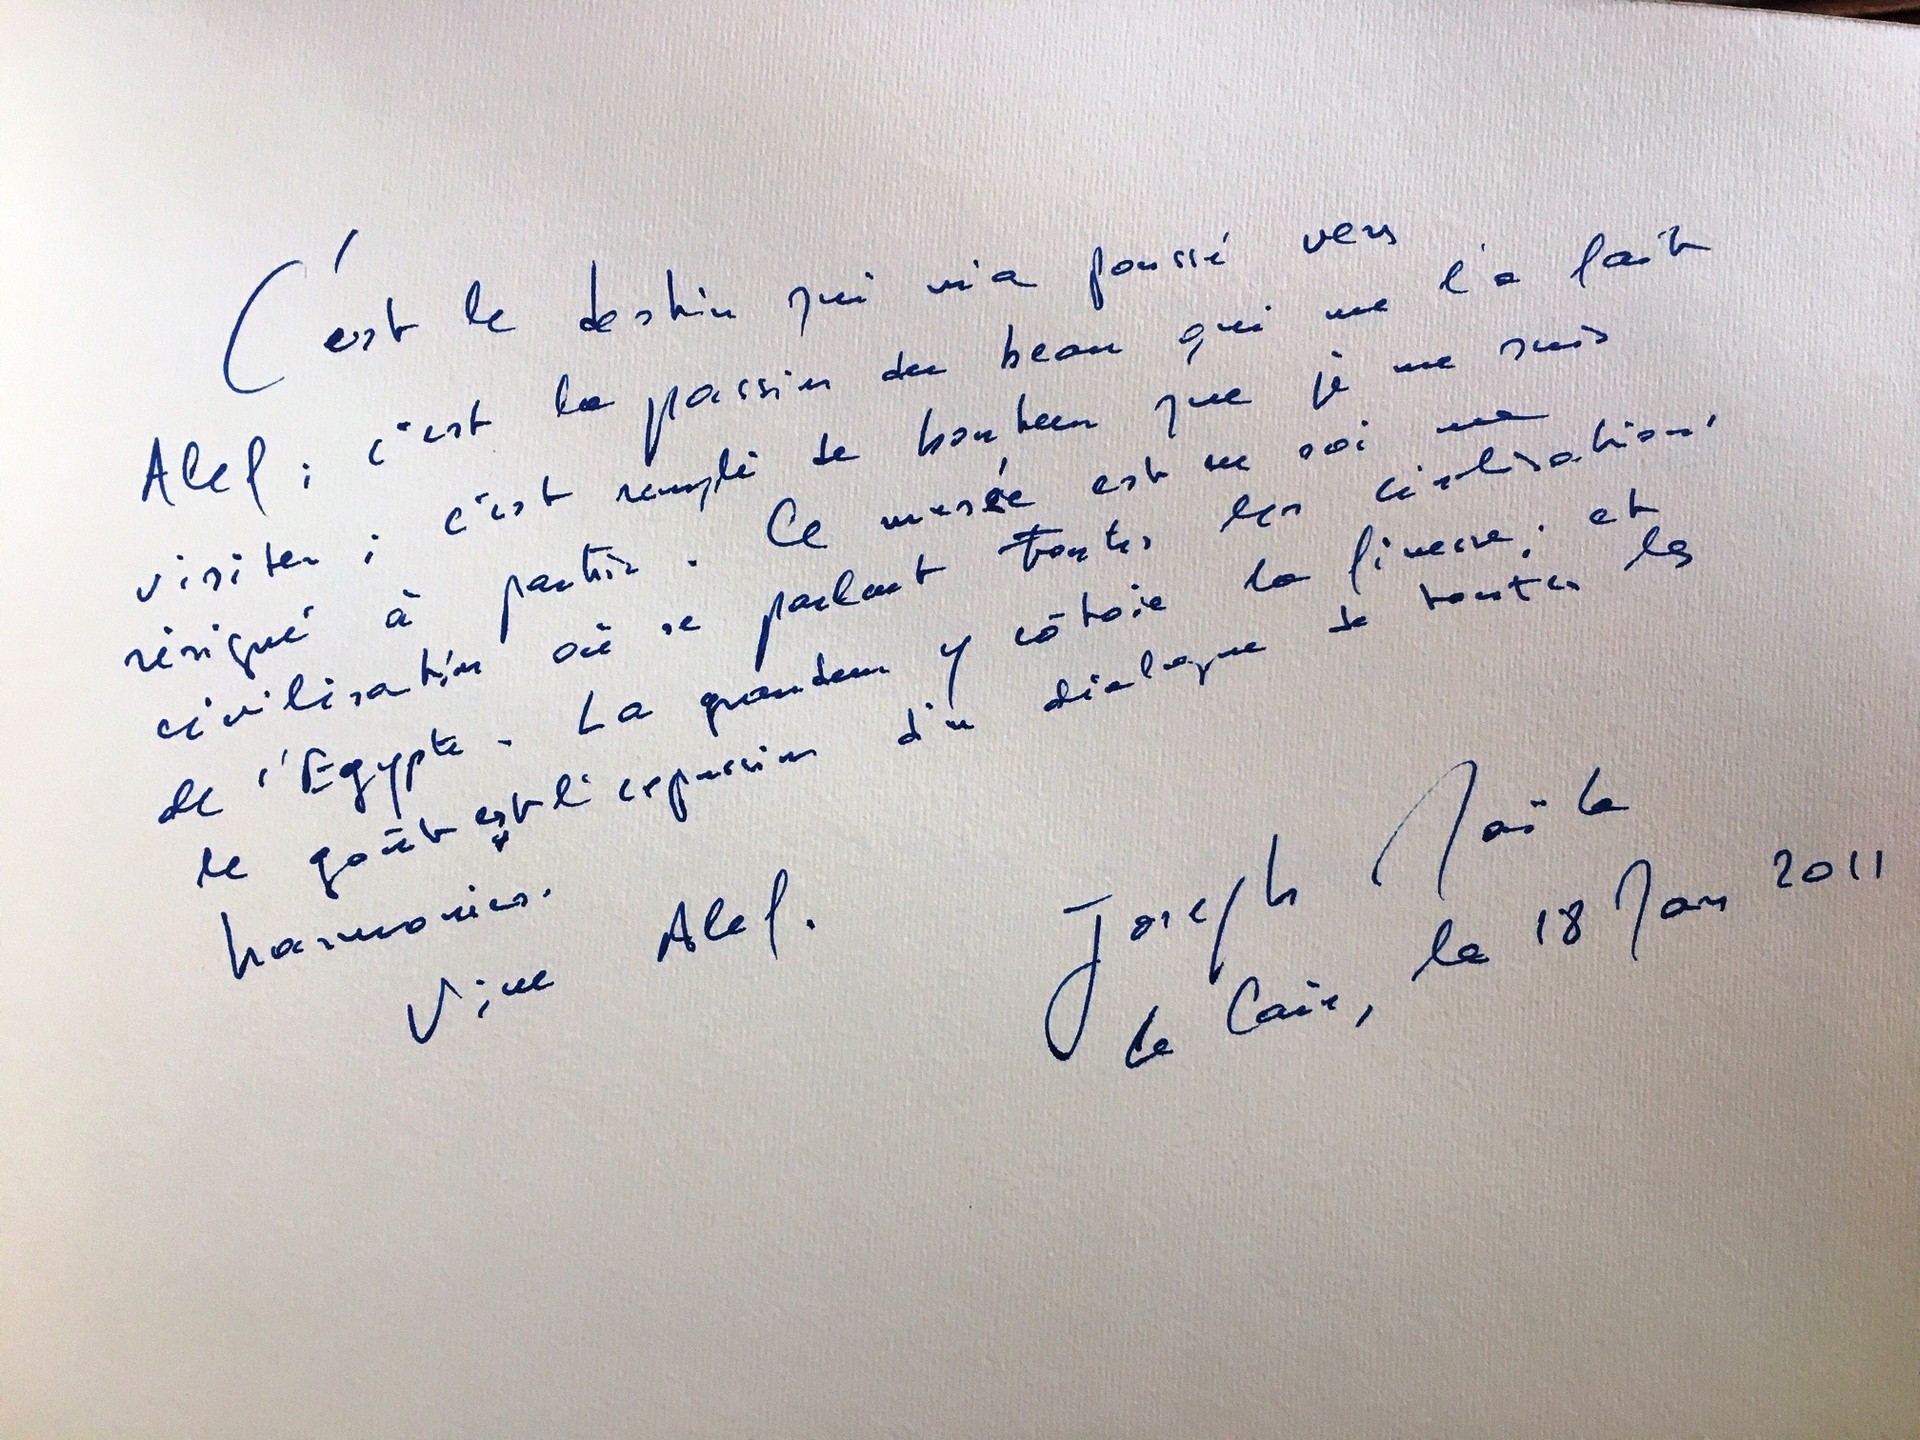 C'est le destin qui m'a poussé vers
Alef ; c'est la passion du beau qui me l'a fait
visiter ; c'est rempli de bonheur que je me suis
résigné à partir. Ce musée est en soi une
civilisation où se parlent toutes les civilisations
de l'Egypte. La grandeur y côtoie la finesse ; et
le goût est l'expression d'un dialogue de toutes les
harmonies.
Vive Alef.
Joseph Maïla
Le Caire, le 18 Mars 2011